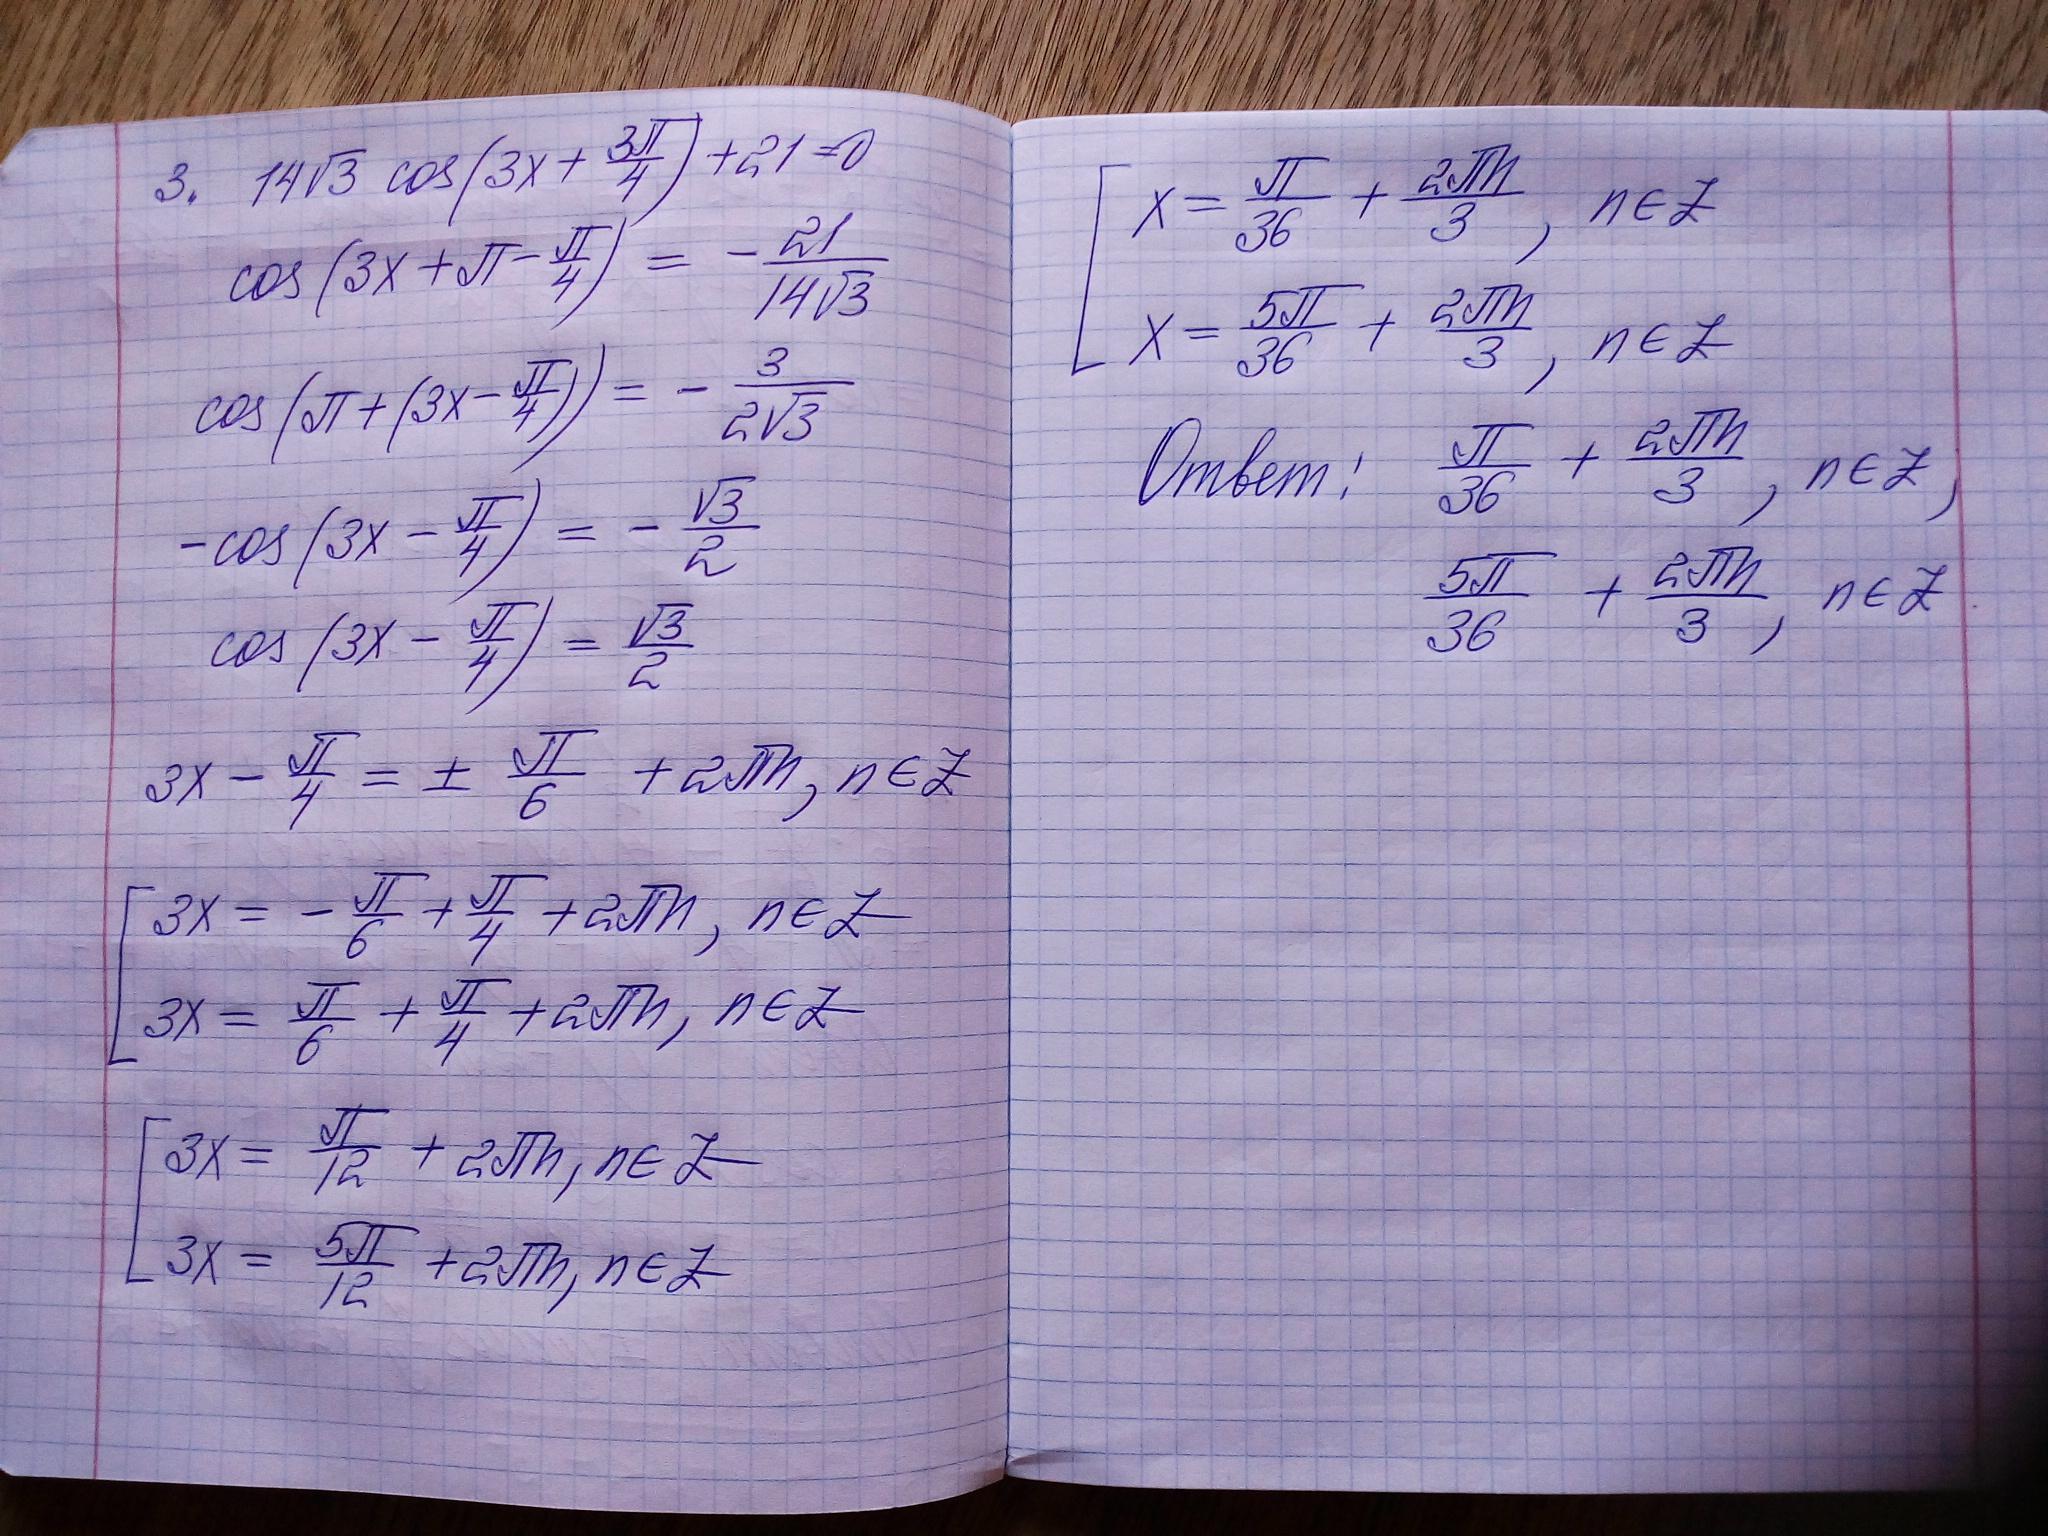 3. 14√3 cos(3x + 3π/4) + 21 = 0
cos(3x + π - π/4) = - 21/(14√3)
cos(π + (3x - π/4)) = - 3/(2√3)
-cos(3x - π/4) = - √3/2
cos(3x - π/4) = √3/2
3x - π/4 = ± π/6 + 2πn, n ∈ Z
[ 3x = - π/6 + π/4 + 2πn, n ∈ Z
3x = π/6 + π/4 + 2πn, n ∈ Z
[ 3x = π/12 + 2πn, n ∈ Z
3x = 5π/12 + 2πn, n ∈ Z
[ x = π/36 + 2πn/3, n ∈ Z
x = 5π/36 + 2πn/3, n ∈ Z
Ответ: π/36 + 2πn/3, n ∈ Z,
5π/36 + 2πn/3, n ∈ Z.